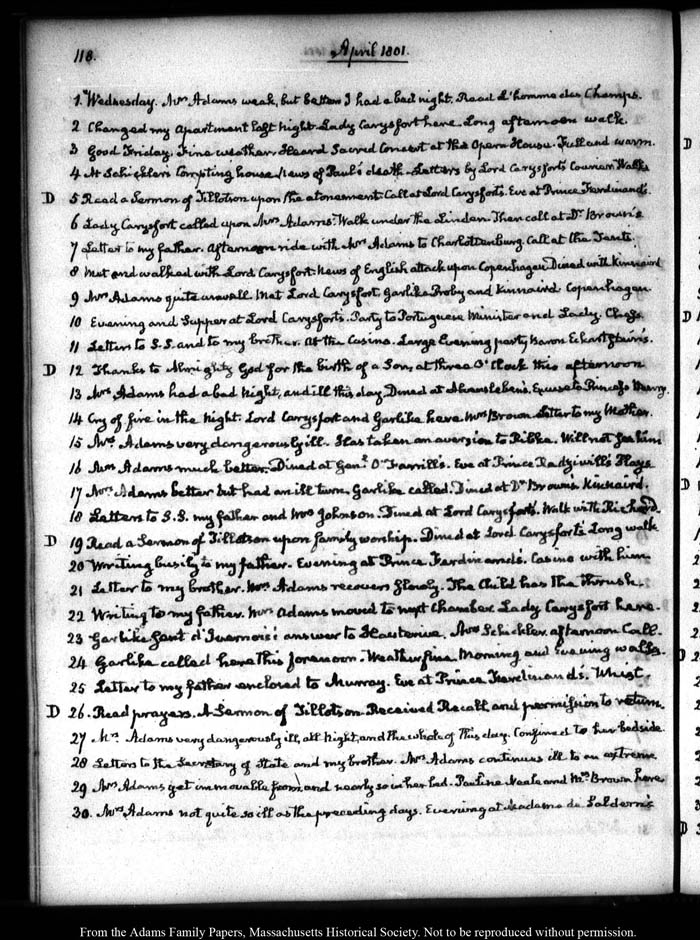 118.
April 1801.
1. Wednesday. Mrs Adams weak, but better. I had a bad night. Read L'homme des Champs.
2 Changed my Apartment last Night. Lady Carysfort here. Long afternoon walk.
3 Good Friday. Fine weather. Heard Sacred Concert at the Opera House. Full and warm.
4 At Schickler's Compting house. News of Paul's death. Letters by Lord Carysfort's Courier. Walks
D 5 Read a Sermon of Tillotson upon the atonement. Call at Lord Carysfort's. Eve at Prince Ferdinand's.
6 Lady Carysfort called upon Mrs Adams. Walk under the Linden. Then call at Dr Brown's
7 Letter to my father. Afternoon ride with Mrs Adams to Charlottenburg. Call at the Tents.
8 Met and walked with Lord Carysfort. News of English attack upon Copenhagen. Dined with Kinnaird
9 Mrs Adams quite unwell. Met Lord Carysfort, Garlike Proby and Kinnaird. Copenhagen.
10 Evening and Supper at Lord Carysfort's. Party to Portuguese Minister and Lady. Chess
11 Letters to S.S. and to my brother. At the Casino. Large Evening party Baron Eckartstein's.
D 12 Thanks to Almighty God for the birth of a Son, at three O'Clock this afternoon
13 Mrs Adams had a bad Night, and ill this day. Dined at Alvensleben's. Excuse to Princess Henry.
14 Cry of fire in the Night. Lord Carysfort and Garlike here. Mrs Brown. Letter to my Mother.
15 Mrs Adams very dangerously ill. Has taken an aversion to Ribke. Will not see him
16 Mrs Adams much better. Dined at Genl O'Farrill's. Eve at Prince Radziwill's Plays
17 Mrs Adams better but had an ill turn. Garlike called. Dined at Dr Brown's Kinnaird.
18 Letters to S.S. my father and Mrs Johnson. Dined at Lord Carysfort's. Walk with Richard
D 19 Read a Sermon of Tillotson upon family worship. Dined at Lord Carysfort's Long walk
20 Writing busily to my father. Evening at Prince Ferdinand's. Casino with him
21 Letter to my brother. Mrs Adams recovers slowly. The Child has the thrush.
22 Writing to my father. Mrs Adams moved to next Chamber. Lady Carysfort here.
23 Garlike sent d'Ivernois's answer to Hauterive. Mrs Schickler afternoon Call.
24 Garlike called here this forenoon. Weather fine. Morning and evening walks.
25 Letter to my father enclosed to Murray. Eve at Prince Ferdinand's. Whist.
D 26. Read prayers. A Sermon of Tillotson. Received Recall and permission to return.
27 Mrs Adams very dangerously ill, all Night, and the whole of this day. Confined to her bedside.
28 Letters to the Secretary of State and my brother. Mrs Adams continues ill to an extreme
29 Mrs Adams yet immovable from, and nearly so in her bed. Pauline Neale and Mrs Brown here
30. Mrs Adams not quite so ill as the preceding days. Evening at Madame de Saldern's
From the Adams Family Papers, Massachusetts Historical Society. Not to be reproduced without permission.